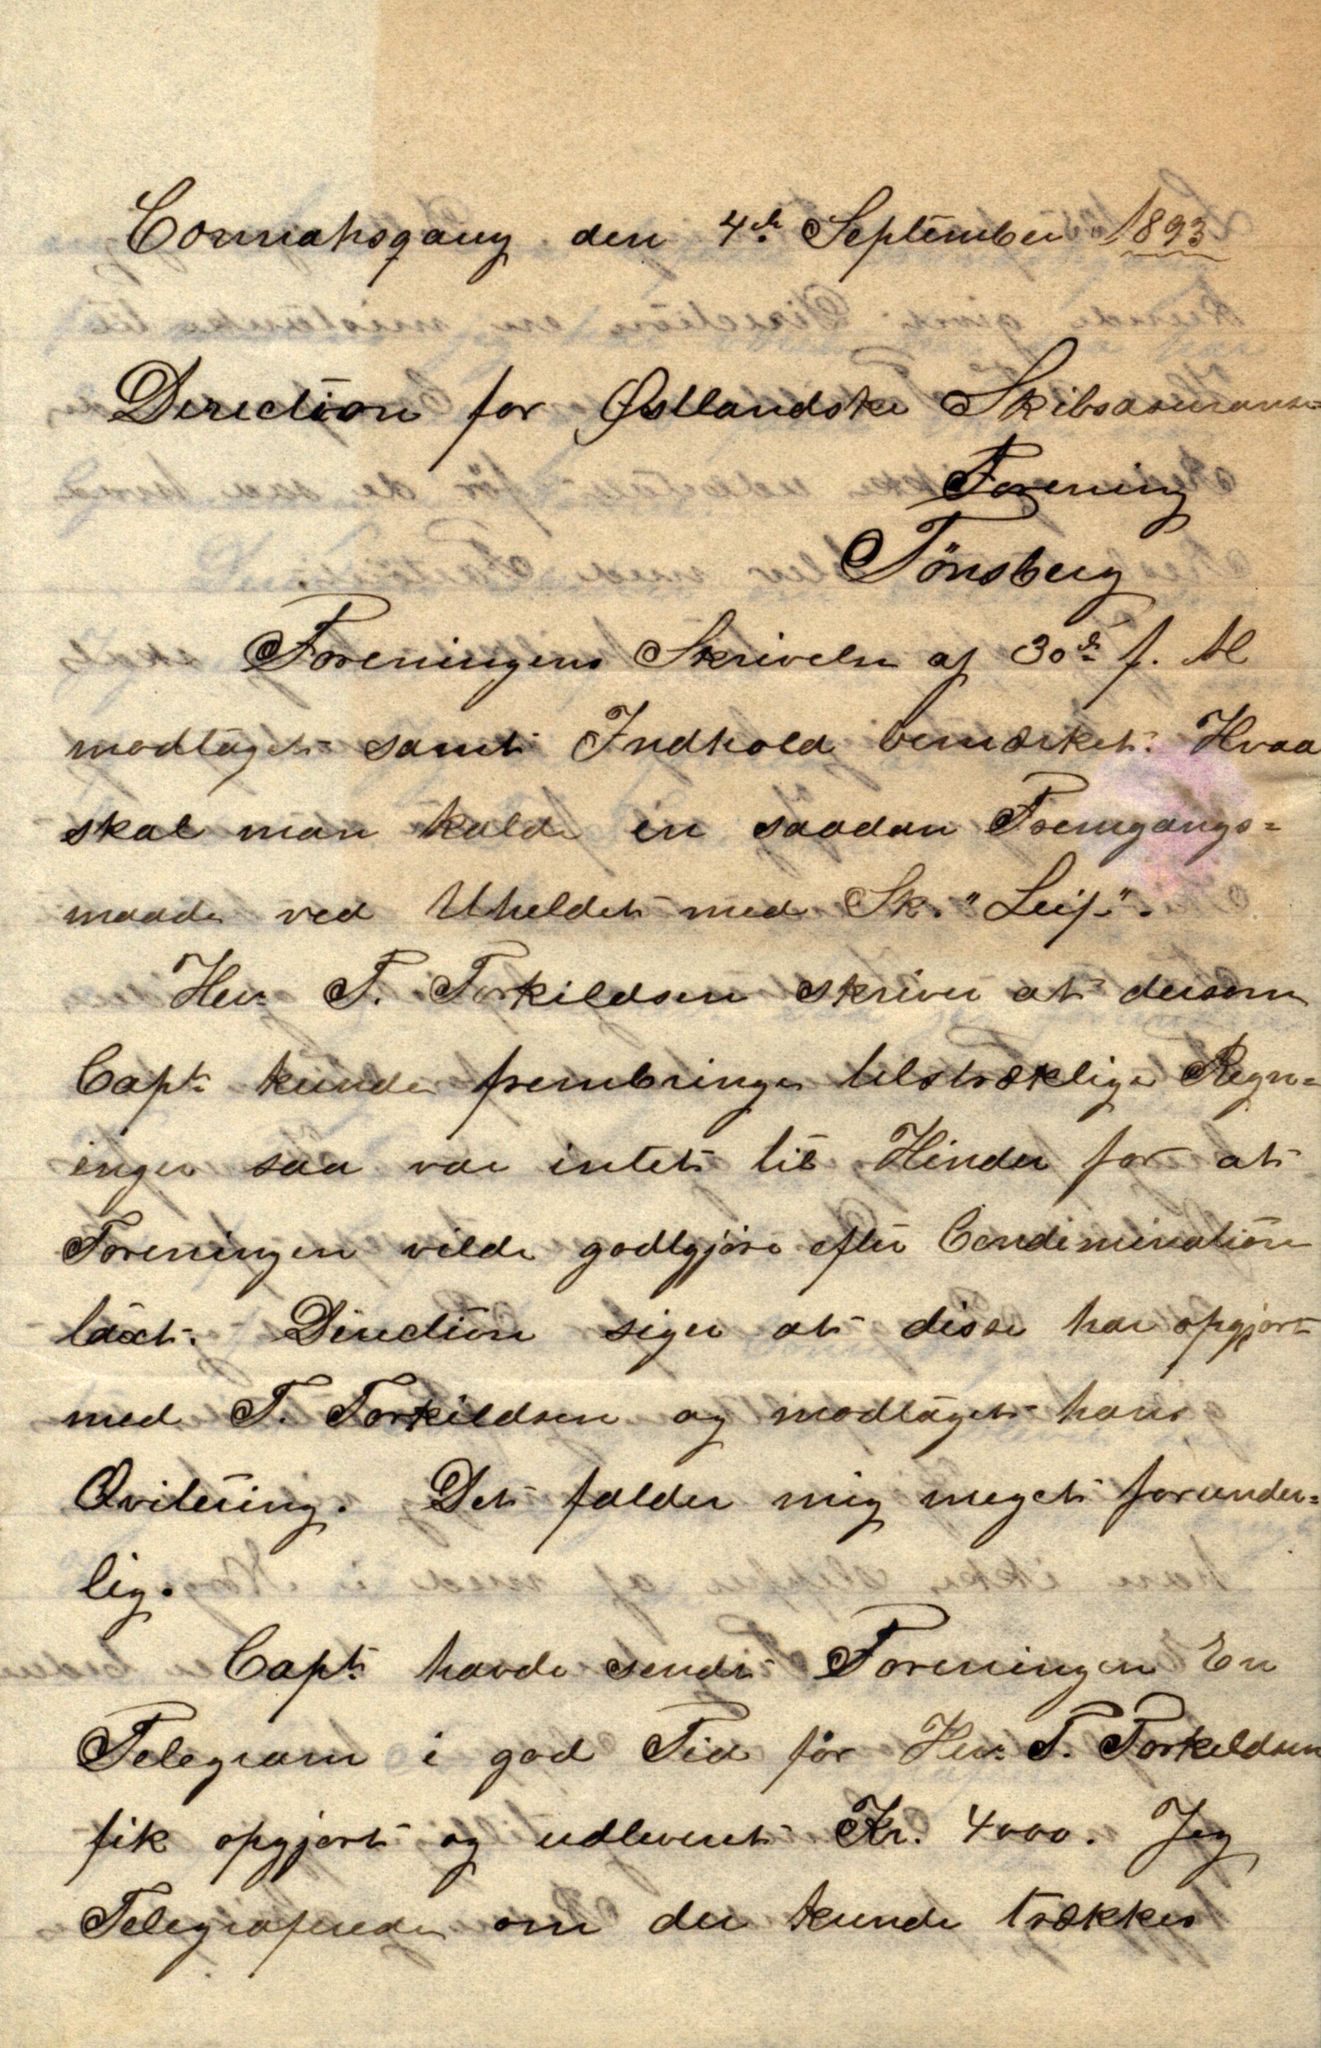 Connahsqauy den 4de September 1893
Direction for Østlandske Skibsasuranse=
Forening
Tønsberg
Foreningens Skrivelse af 30de f. M
modtaget samt Indhold bemærket. Hvaa
skal man kalde en saadan Fremgangs=
maade ved Uheldet med Sk. "Leif".
Herr T. Torkildsen skriver at dersom
Capt. kunde frembringe tilstræklige Regn=
inger saa var intet til Hinder for at
Foreningen vilde godtgjøre efter Condimination
taxt. Direction siger at disse har opgjort
med T. Torkildsen og modtaget hans
Qvitering. Det falder mig meget forunder=
lig.
Capt. havde sendt Foreningen En
Telegram i god Tid før Herr T. Torkildsen
fik opgjort og udleveret Kr. 4000. Jeg
Telegraferede om der kunde trækkes